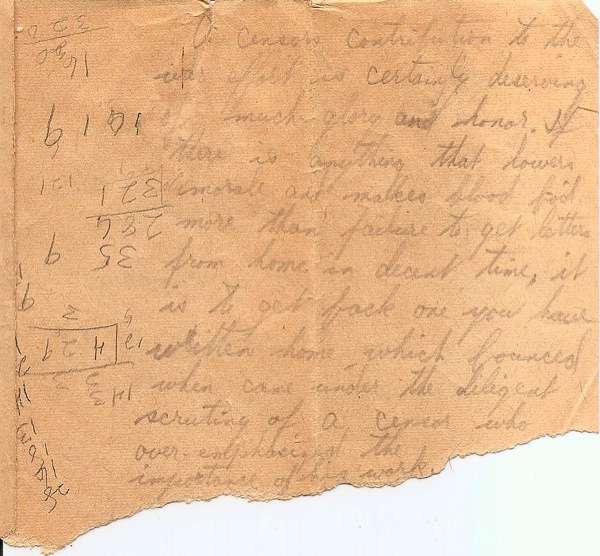 A censors contribution to the
war effort is certainly deserving
of much glory and honor. If
there is anything that lowers
morale and makes blood boil
more than failure to get letters
from home in decent time, it
is to get back one you have
written home which bounced
when came under the diligent
scrutiny of a censor who
over-emphasized the
importance of his work.